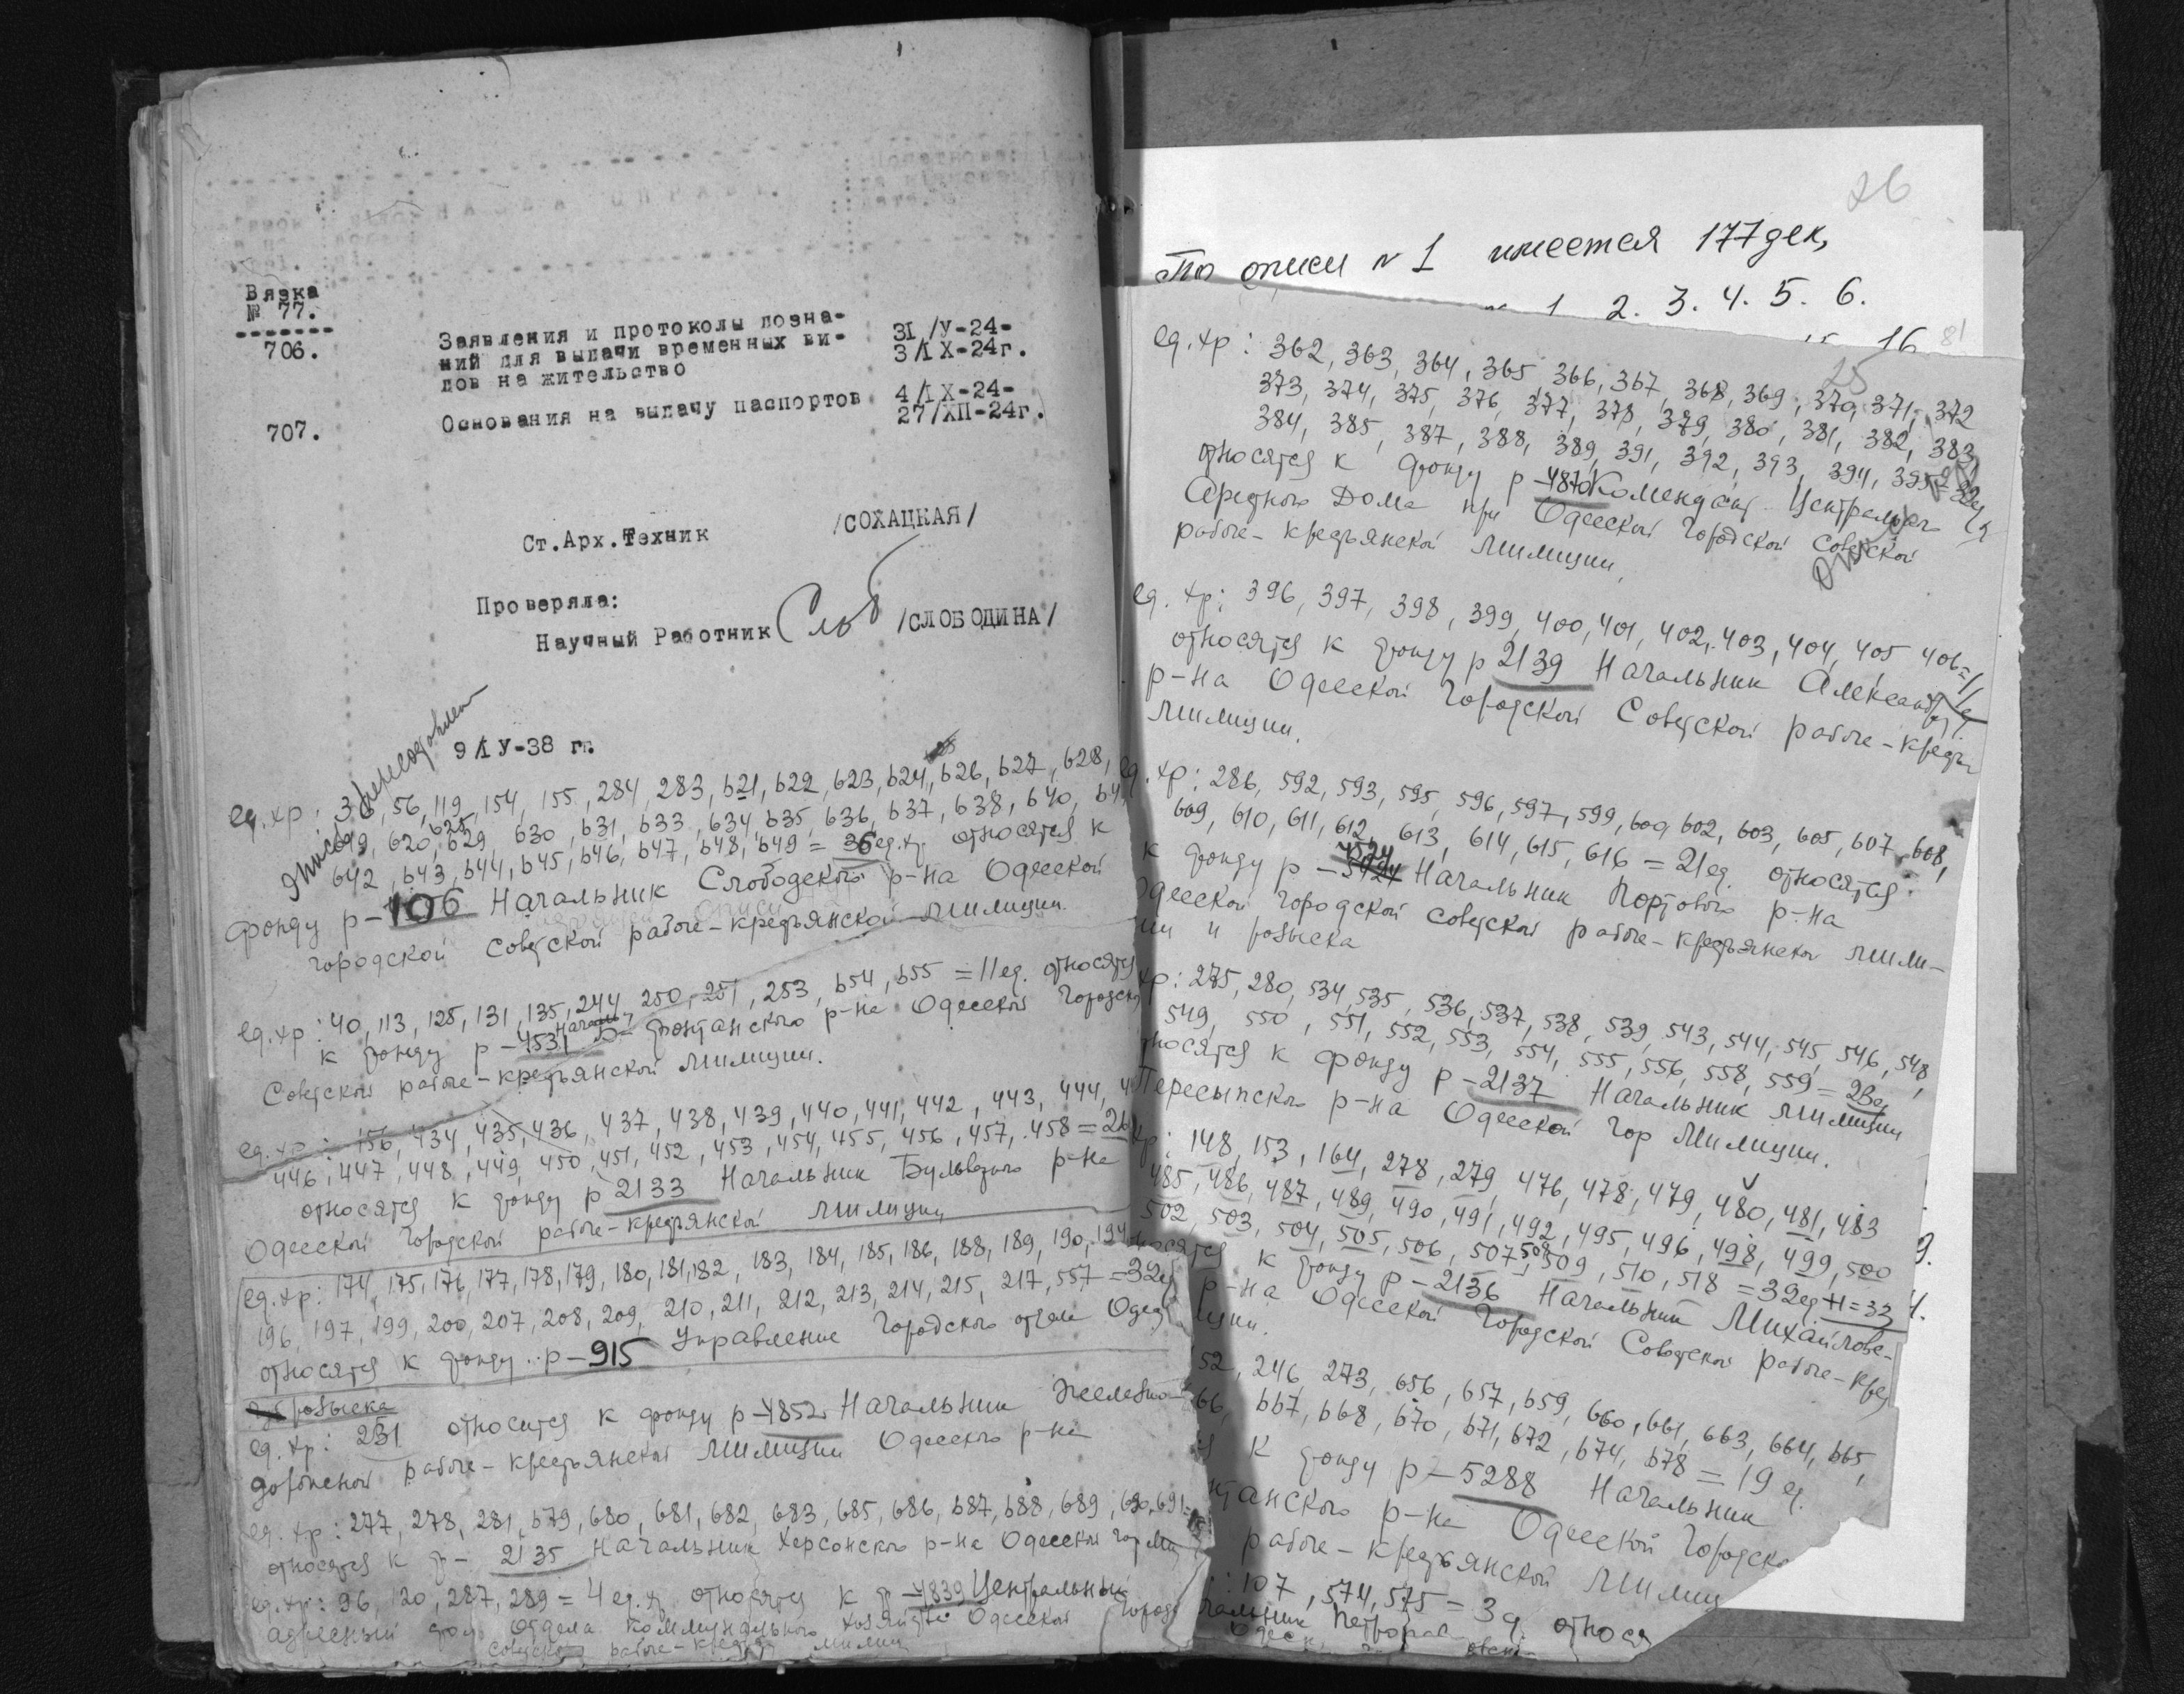 Вязка
№ 77.
706.
Заявления и протоколы дозна-
ний для выдачи временных ви-
дов на жительство
31/У-24-
3/IX-24г.
707.
Основания на выдачу паспортов
4/IX-24-
27/ХП-24г.
Ст.Арх.Техник /СОХАЦКАЯ/
Проверяла:
Научный Работник /СЛОБОДИНА/
9/IУ-38 г.
ед.хр: 36, 56, 119, 154, 155, 284, 283, 621, 622, 623, 624, 626, 627, 628,
620, 629, 630, 631, 633, 634, 635, 636, 637, 638, 640,
642, 643, 644, 645, 646, 647, 648, 649 = 36 ед.хр относятся к
фонду р-106 Начальник Слободского р-на Одесской
городской советской рабоче-крестьянской милиции
ед.хр: 40, 113, 125, 131, 135, 244, 250, 251, 253, 654, 655 = 11 ед. относятся
к фонду р-4531 Фонтанского р-на Одесской Городской
Советской рабоче-крестьянской милиции.
ед.хр: 156, 434, 435, 436, 437, 438, 439, 440, 441, 442, 443, 444,
446, 447, 448, 449, 450, 451, 452, 453, 454, 455, 456, 457, 458 = 26
относятся к фонду р 2133 Начальник Бульварного р-на
Одесской Городской рабоче-крестьянской милиции
ед.хр: 174, 175, 176, 177, 178, 179, 180, 181, 182, 183, 184, 185, 186, 188, 189, 190, 194
196, 197, 199, 200, 207, 208, 209, 210, 211, 212, 213, 214, 215, 217, 557 = 32 ед
относятся к фонду р-915 Управление Городского
розыска
ед.хр: 231 относится к фонду р-4852 Начальник Железно-
дорожной рабоче-крестьянской милиции Одесского р-на
ед.хр: 277, 278, 281, 679, 680, 681, 682, 683, 685, 686, 687, 688, 689, 690, 691
относятся к ф- 2135 Начальник Херсонского р-на Одесской гор
ед.хр: 96, 120, 287, 289 = 4 ед.хр относятся к ф-4839 Центральный
адресный Отдела Коммунального хозяйства Одесской
рабоче-крестьян милиц
26
По описи №1 имеется 177 дел,
1 2. 3. 4. 5. 6.
16
81
25
ед.хр: 362, 363, 364, 365, 366, 367, 368, 369, 370, 371, 372
373, 374, 375, 376, 377, 378, 379, 380, 381, 382, 383
384, 385, 387, 388, 389, 391, 392, 393, 394, 395 = 32 ед
относятся к фонду р-4870 Комендант Центрального
Арестного Дома при Одесской Городской Советской
рабоче-крестьянской милиции,
ед.хр: 396, 397, 398, 399, 400, 401, 402, 403, 404, 405 406 = 11 ед
относятся к фонду р 2139 Начальник Александ
р-на Одесской Городской Советской рабоче-крестьян
милиции.
ед.хр: 286, 592, 593, 595, 596, 597, 599, 600, 602, 603, 605, 607, 608,
609, 610, 611, 612, 613, 614, 615, 616 = 21 ед. относятся
к фонду р- Начальник Портового р-на
Одесской городской советской рабоче-крестьянской мили-
ции и розыска
хр: 275, 280, 534, 535, 536, 537, 538, 539, 543, 544, 545, 546, 548,
549, 550, 551, 552, 553, 554, 555, 556, 558, 559 = 23 ед
относятся к фонду р-2137 Начальник милиции
Пересыпского р-на Одесской гор Милиции.
хр: 148, 153, 164, 278, 279, 476, 478, 479, 480, 481, 483
485, 486, 487, 489, 490, 491, 492, 495, 496, 498, 499, 500
502, 503, 504, 505, 506, 507, 508, 509, 510, 518 = 32 ед +1=33
относятся к фонду р-2136 Начальник Михайлов-
р-на Одесской Городской Советской рабоче-крес
лиции.
52, 246, 273, 656, 657, 659, 660, 661, 663, 664, 665,
66, 667, 668, 670, 671, 672, 674, 678 = 19 ед.
к фонду р-5288 Начальник
нтанского р-на Одесской Городско
рабоче-крестьянской милиц
: 107, 574, 575 = 3 ед. относя
чальник Петропав